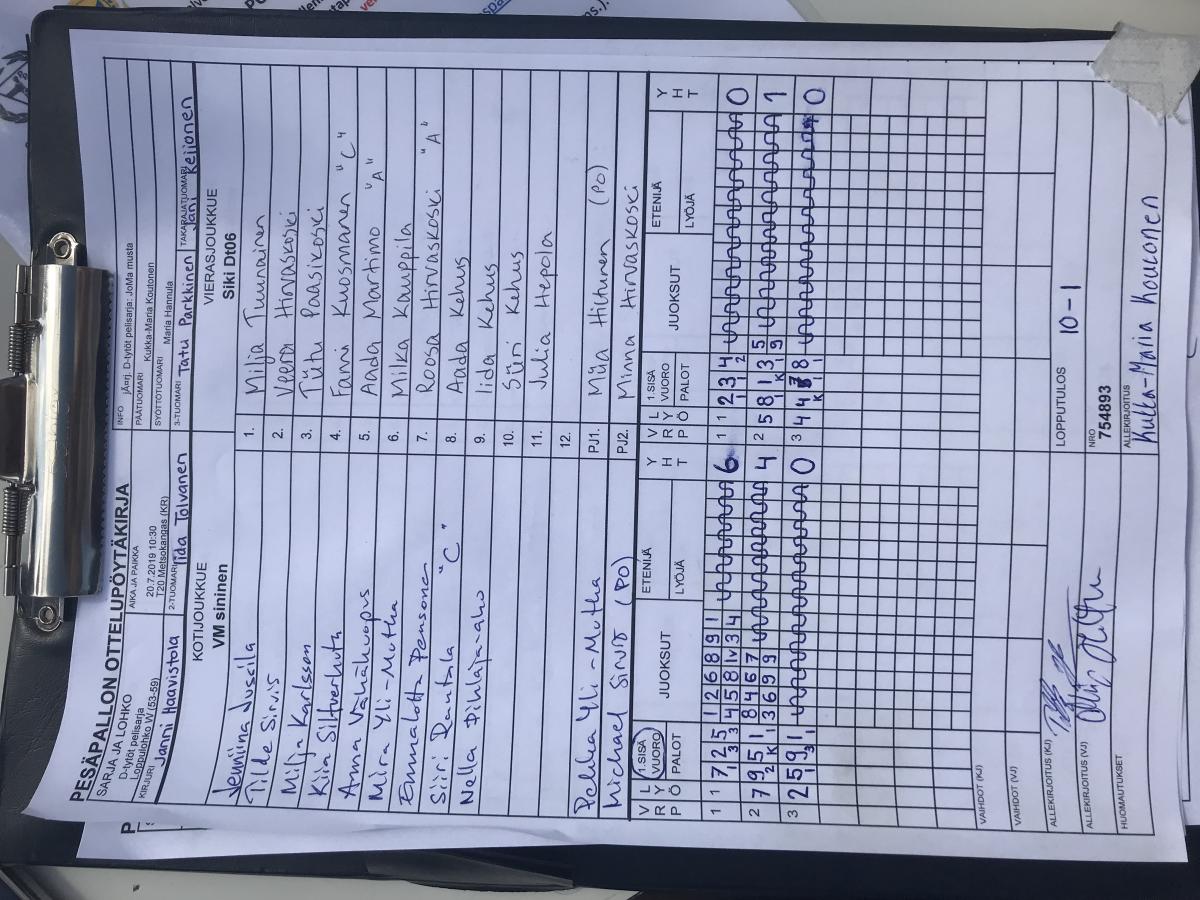 PESÄPALLON OTTELUPÖYTÄKIRJA
INFO jÄrj: D-tytöt pelisarja: JoMa musta
SARJA JA LOHKO
D-tytöt pelisarja
Loppulohko W (53-59)
AIKA JA PAIKKA
20.7.2019 10:30
T20 Metsokangas (KR)
PÄÄTUOMARI Kukka-Maria Koutonen
SYÖTTÖTUOMARI Maria Hannula
KIRJURI Janni Haavistola
2-TUOMARI Iida Tolvanen
3-TUOMARI Tatu Parkkinen
TAKARAJATUOMARI Jani Keijonen
KOTIJOUKKUE
VM sininen
VIERASJOUKKUE
Siki Dt06
Jenniina Jussila 1. Milja Tunnainen
Tilde Sirviö 2. Veera Hirvaskoski
Milja Karlsson 3. Tytu Paasikoski
Kiia Silfverhuta 4. Fanni Kuosmanen "C"
Anna Vahakuopus 5. Aada Martimo "A"
Mira Yli-Mutka 6. Milka Kauppila
Emmalotta Pensonen 7. Roosa Hirvaskoski "A"
Siiri Rautala "C" 8. Aada Kehus
Nella Pihlaja-aho 9. Iida Kehus
10. Siiri Kehus
11. Julia Hepola
12.
Pekka Yli-Mutka PJ1. Miia Hiltunen (PO)
Michael Sirviö (PO) PJ2. Minna Hirvaskoski
V R P L Y Ö 1.SISÄ VUORO PALOT JUOKSUT ETENIJÄ LYÖJÄ Y H T V R P L Y Ö 1.SISÄ VUORO PALOT JUOKSUT ETENIJÄ LYÖJÄ Y H T
1 1 7 2 5 1 2 6 8 9 1 6 1 1 2 3 4 0
1 3 3 4 5 8 1V 3 4 1 1 2
2 7 9 5 1 8 4 6 7 4 2 5 8 1 3 5 1
2 K 1 3 6 9 9 1 K 1 9
3 2 5 9 1 0 3 4 4 8 0
1 3 1 K 1 1
VAIHDOT (KJ)
VAIHDOT (VJ)
ALLEKIRJOITUS (KJ)
LOPPUTULOS 10-1
ALLEKIRJOITUS (VJ)
NRO
754893
HUOMAUTUKSET
ALLEKIRJOITUS
Kukka-Maria Koutonen